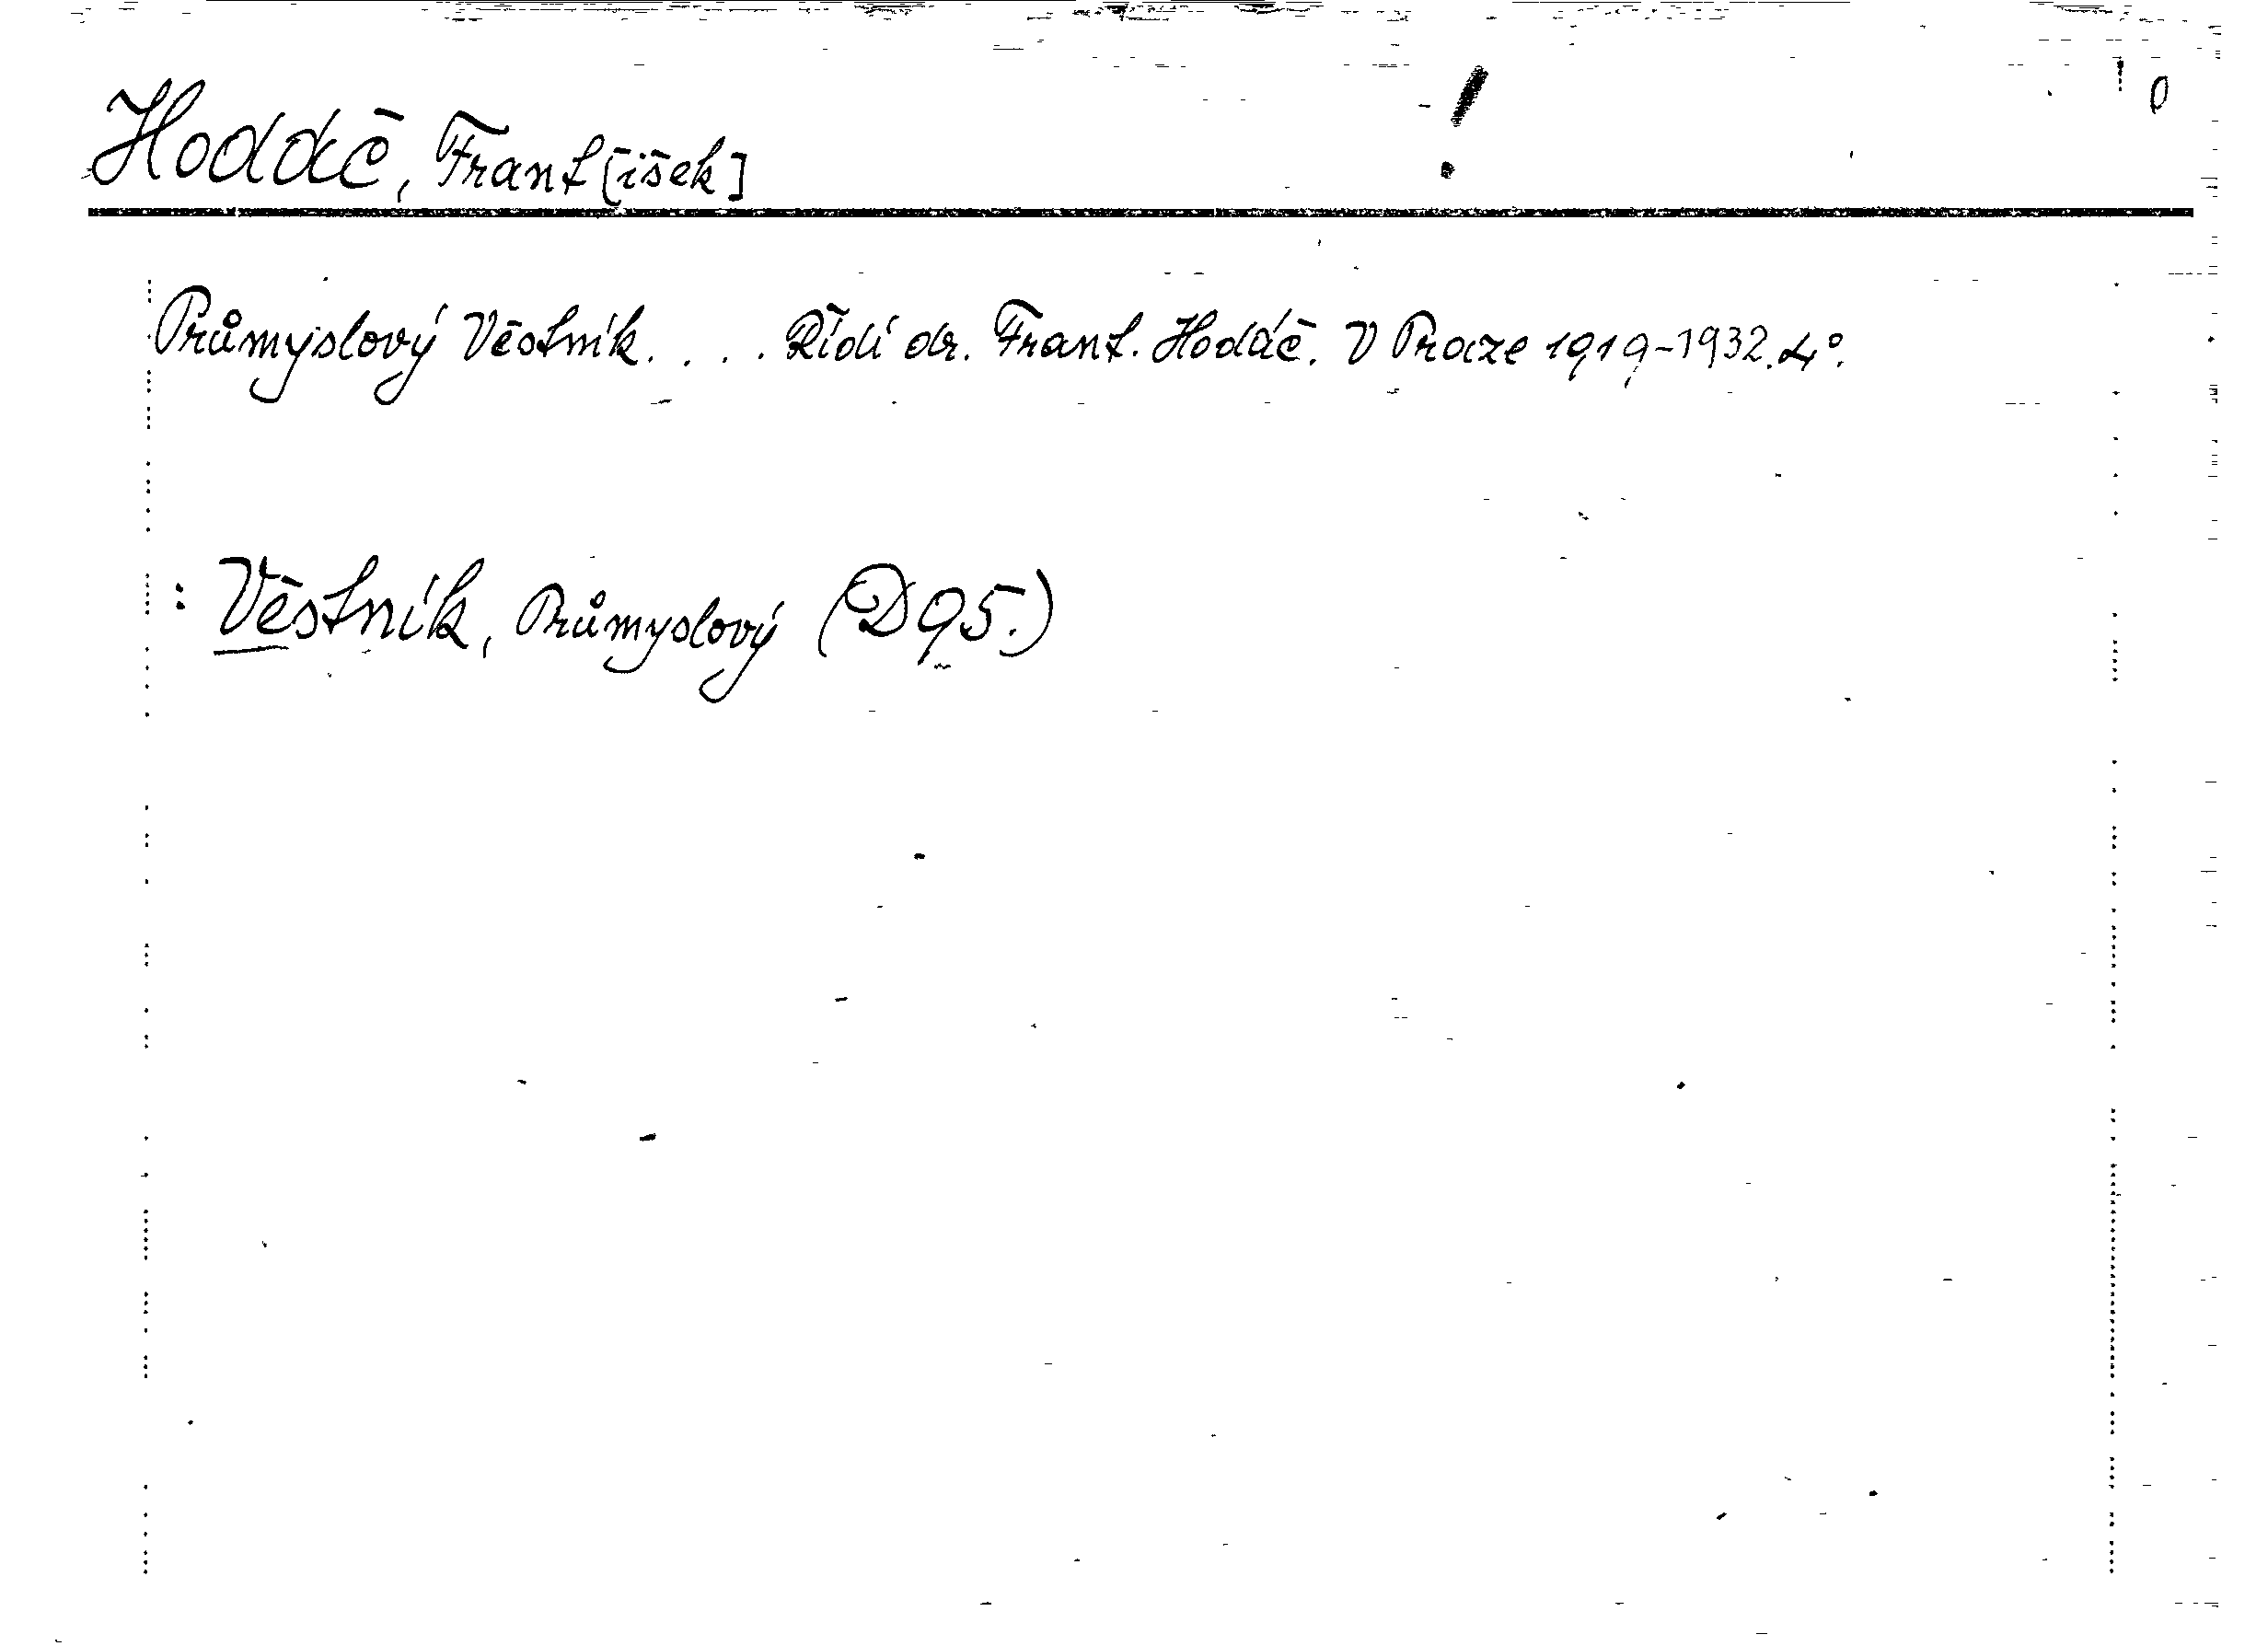 Hodáč, Frant[išek] !
Průmyslový Věstník. . . . Řídí dr. Frant. Hodáč. V Praze 1919-1932. 4°.
: Věstník, Průmyslový (D95.)